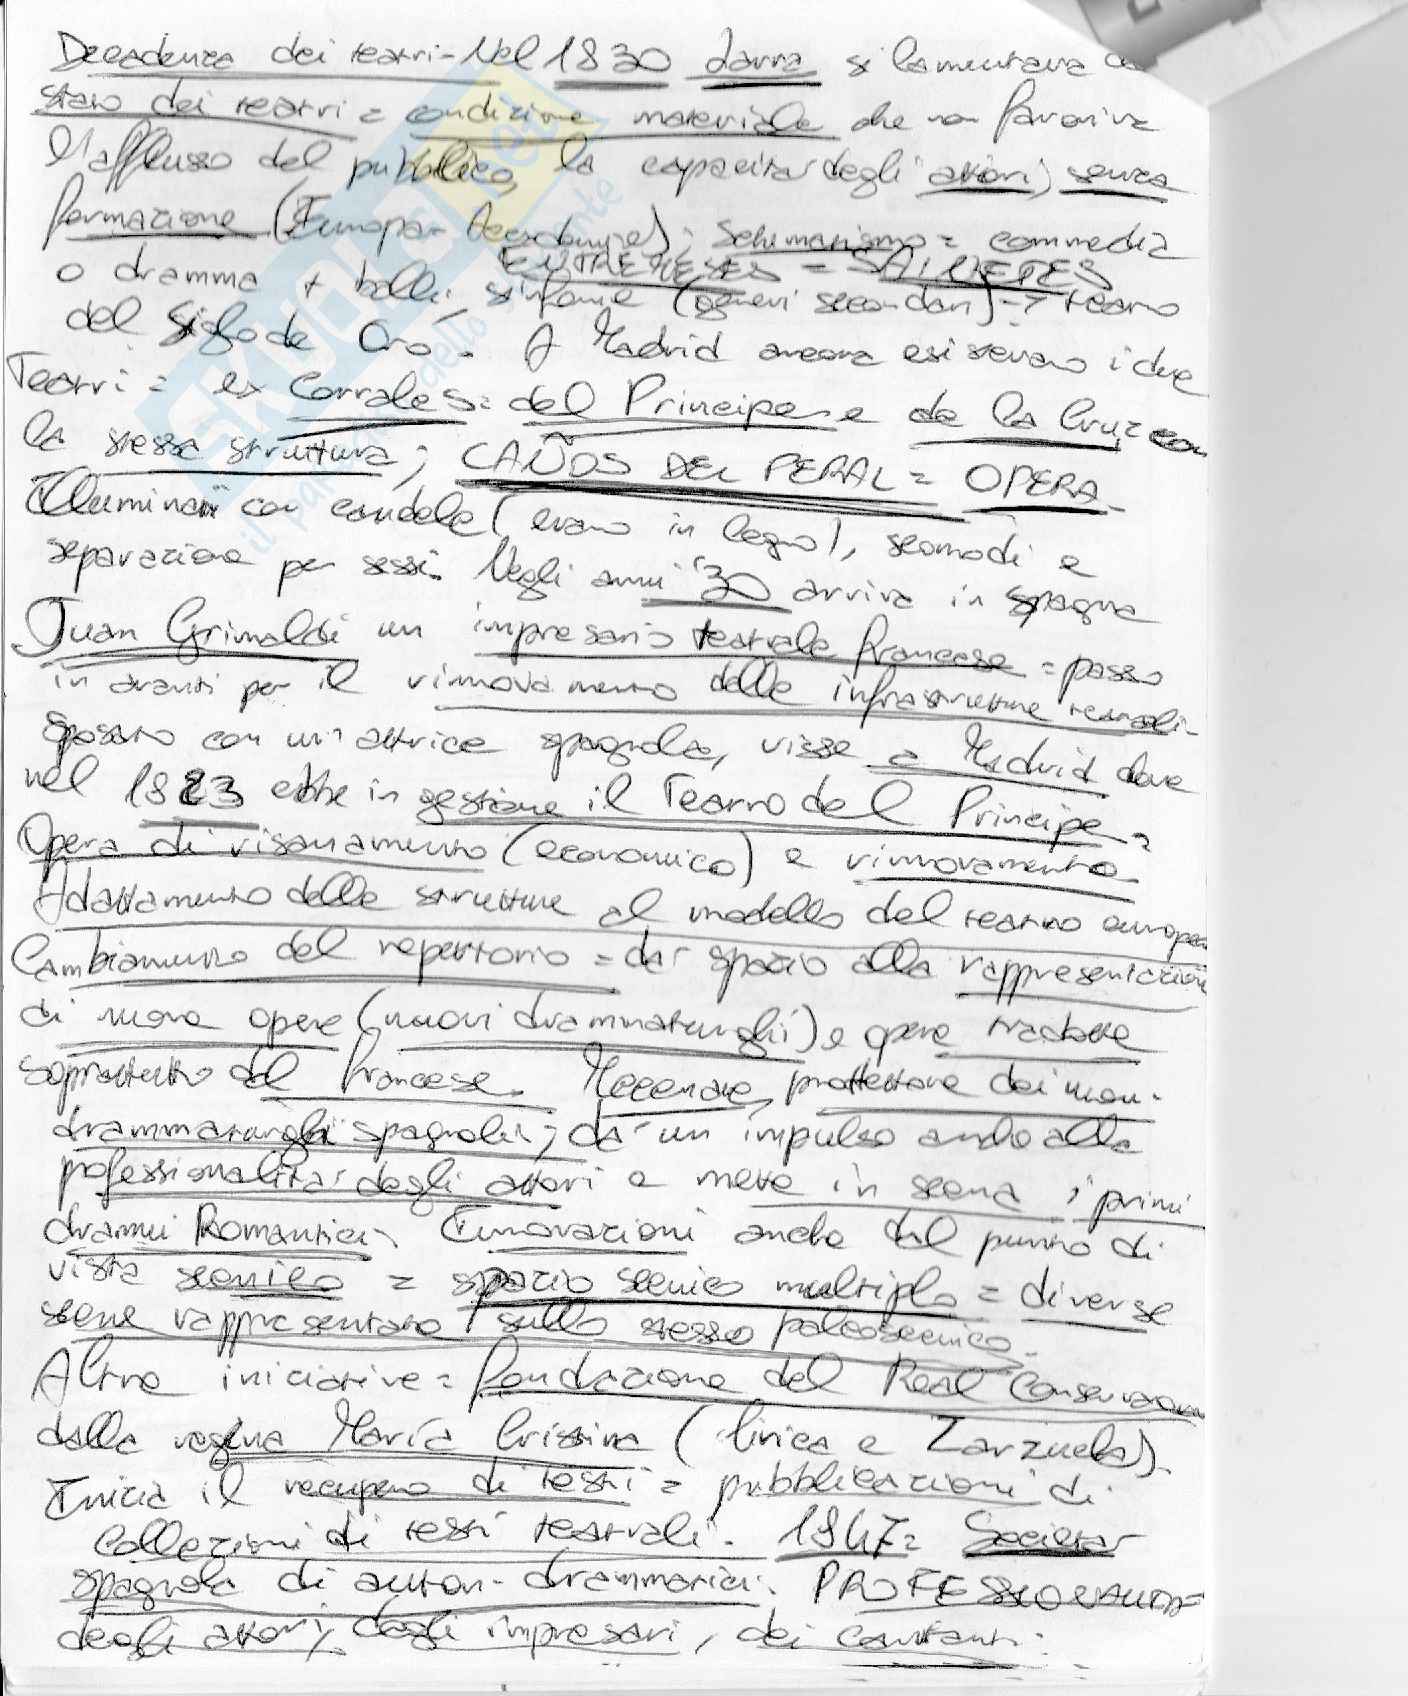 Decadenza dei teatri - Nel 1830 Larra si lamentava
stato dei teatri = condizione materiale che non favoriva
l'afflusso del pubblico, la capacità degli attori, senza
formazione (Europa - Accademie); schematismo = commedia
ENTREMESES = SAINETES
o dramma + balli, sinfonie (generi secondari) -> teatro
del Siglo de Oro. A Madrid ancora esistevano i due
Teatri = ex Corrales: del Principe e de la Cruz con
la stessa struttura; CAÑOS DEL PERAL = OPERA
Illuminati con candele (erano in legno), scomodi e
separazione per sessi. Negli anni '30 arriva in Spagna
Juan Grimaldi un impresario teatrale francese = passo
in avanti per il rinnovamento delle infrastrutture teatrali.
Sposato con un'attrice spagnola, visse a Madrid dove
nel 1823 ebbe in gestione il Teatro del Principe =
Opera di risanamento (economico) e rinnovamento
Adattamento delle strutture al modello del teatro europeo
Cambiamento del repertorio = dà spazio alla rappresentazione
di nuove opere (nuovi drammaturghi) e opere tradotte
soprattutto dal francese. Mecenate, protettore dei nuovi
drammaturghi spagnoli; dà un impulso anche alla
professionalità degli attori e mette in scena i primi
drammi Romantici. Innovazioni anche dal punto di
vista scenico = spazio scenico multiplo = diverse
scene rappresentate sullo stesso palcoscenico.
Altre iniziative = fondazione del Real Conservatorio
dalla regina María Cristina (lirica e Zarzuela).
Inizia il recupero di testi = pubblicazioni di
collezioni di testi teatrali. 1847 = Società
spagnola di autori drammatici. PROFESSIONALITÀ =
degli attori, degli impresari, dei cantanti.
SKUOLA.net
il paradiso dello studente